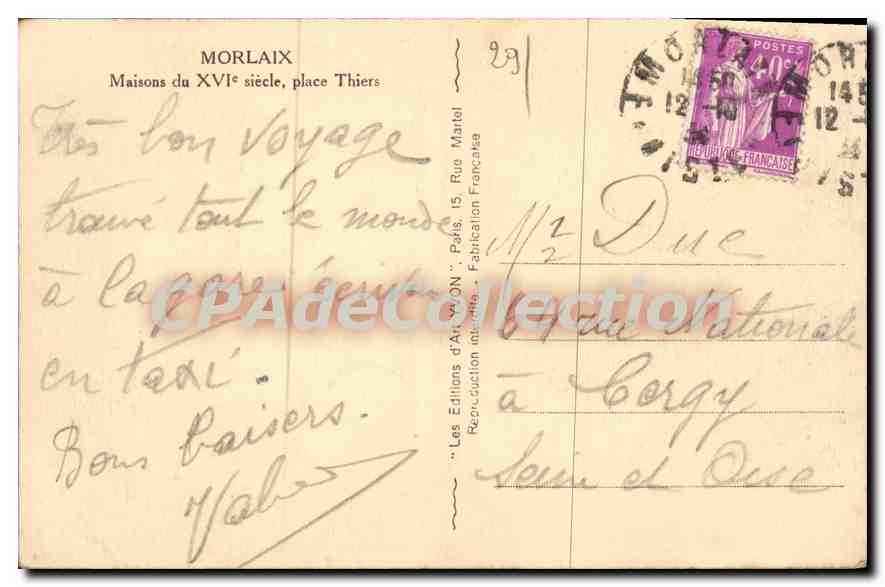 MORLAIX
Maisons du XVIe siècle, place Thiers
Très bon voyage
trouvé tout le monde
à la gare
en taxi.
Bons baisers.
"Les Editions d'Art YVON", Paris, 15, Rue Martel
Reproduction interdite - Fabrication Française
29
POSTES
40c
RÉPUBLIQUE FRANÇAISE
14 50
12
Duc
rue Nationale
à Cergy
Seine et Oise
CPAdeCollection